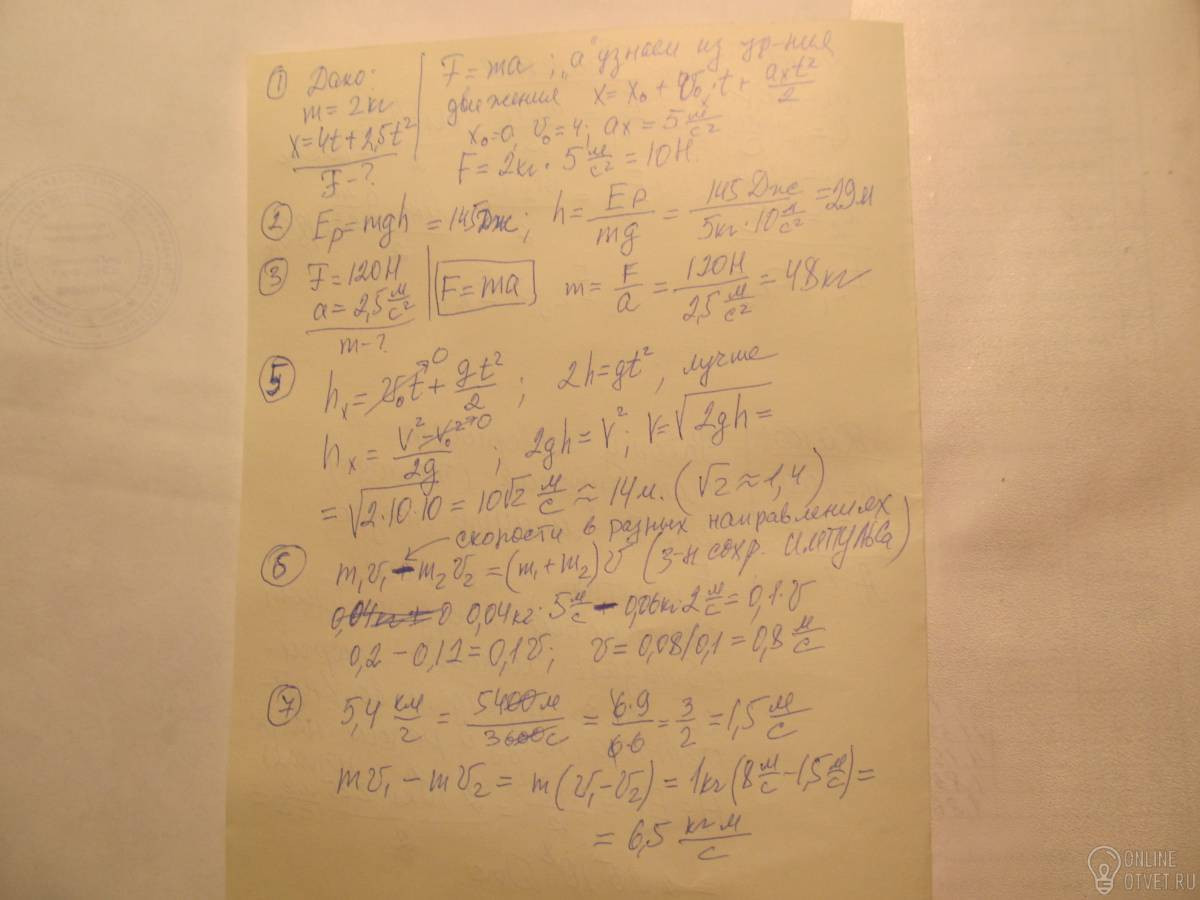 ① Дано: F = ma ; „a" узнаем из ур-ния
m = 2кг движения x = x₀ + v₀ₓt + aₓt²/2
x = 4t + 2,5t² x₀ = 0, v₀ = 4; aₓ = 5 м/с²
F - ? F = 2кг · 5 м/с² = 10Н.
② Eр = mgh = 145Дж; h = Eр/mg = 145Дж/5кг·10 м/с² = 29м
③ F = 120Н F = ma, m = F/a = 120Н/2,5 м/с² = 48кг
a = 2,5 м/с²
m - ?
⑤ hₓ = v₀t→0 + gt²/2 ; 2h = gt², лучше
hₓ = V² - V₀²→0/2g ; 2gh = V²; V = √2gh =
= √2·10·10 = 10√2 м/с ≈ 14м. (√2 ≈ 1,4)
скорости в разных направлениях
⑥ m₁v₁ - m₂v₂ = (m₁ + m₂)v (з-н сохр. импульса)
0,04кг · 5 м/с - 0,06кг·2 м/с = 0,1·v
0,2 - 0,12 = 0,1v; v = 0,08/0,1 = 0,8 м/с
⑦ 5,4 км/г = 5400м/3600с = 6·9/6·6 = 3/2 = 1,5 м/с
mv₁ - mv₂ = m(v₁ - v₂) = 1кг(8 м/с - 1,5 м/с) =
= 6,5 кг м/с
ONLINE
OTVET.RU